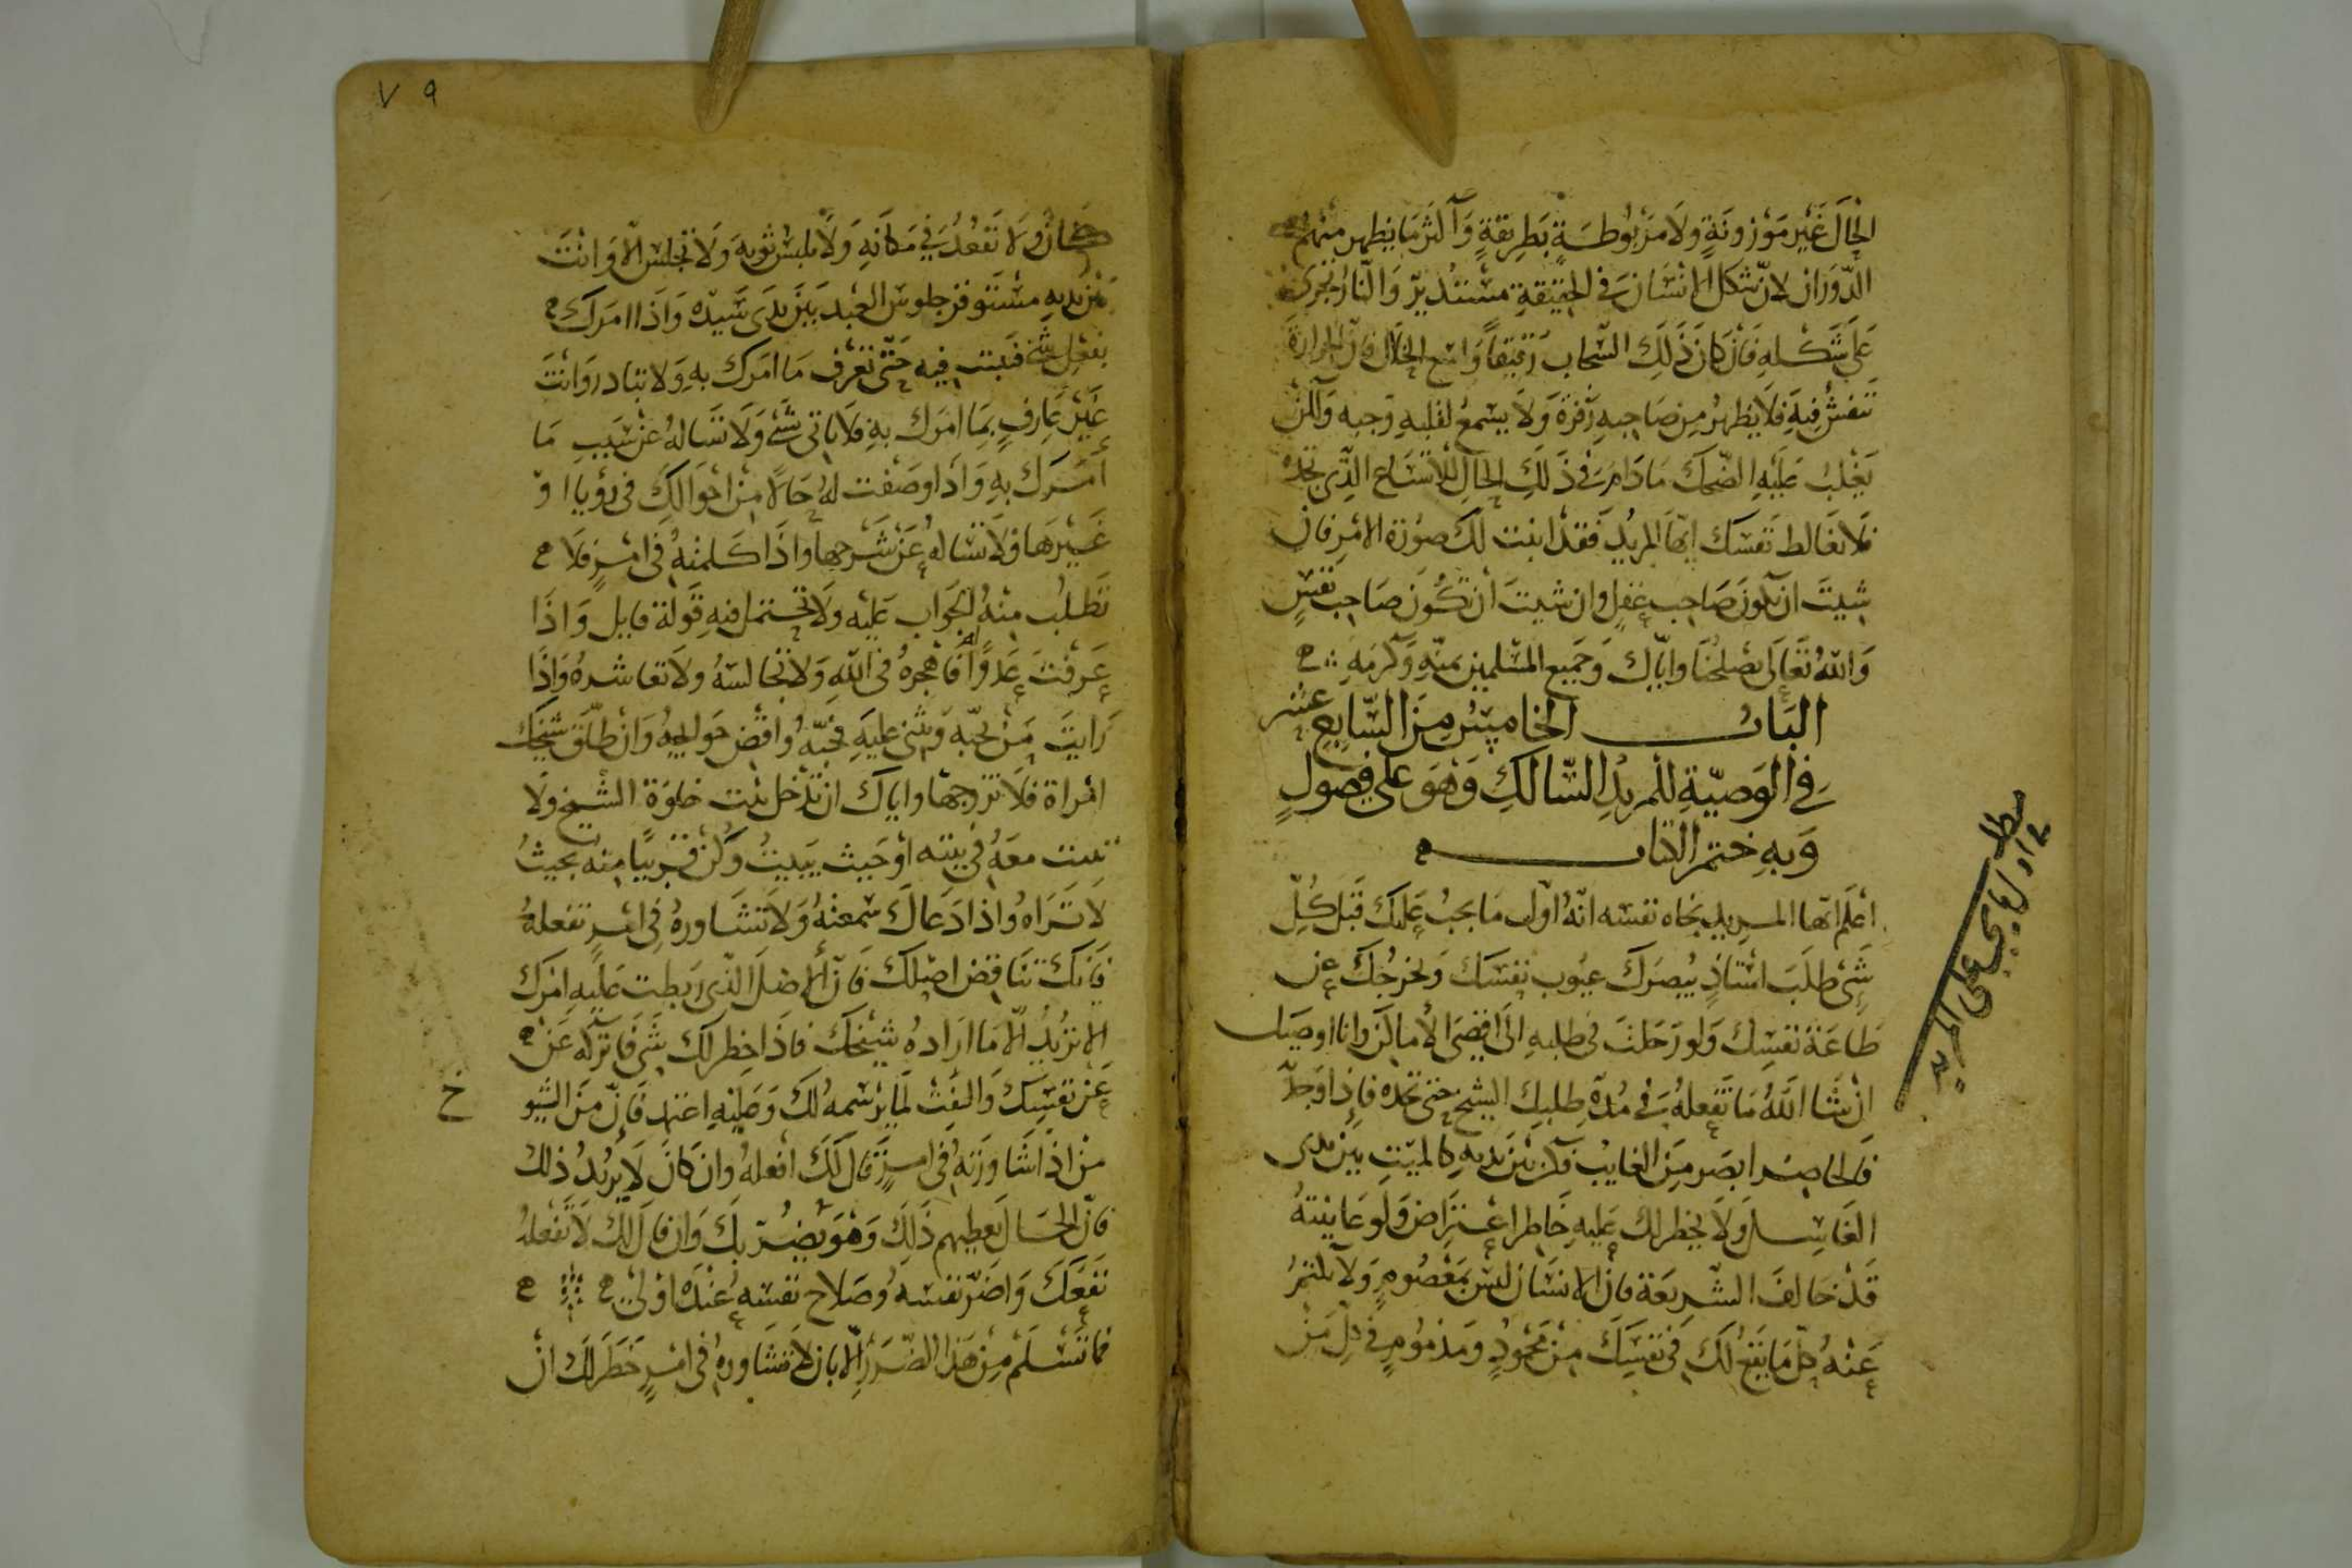 الحال غير موزونة ولا مربوطة بطريقة وأكثر ما يظهر منهم
الدوران لان شكل الانسان في الحقيقة مستدير والنار تجري
على شكله فان كان ذلك السحاب رقيقا واسع الخلال فان الحرارة
تنفش فيه فلا يظهر من صاحبه زفرة ولا يسمع لقلبه وجبه ولكن
يغلب عليه الضحك ما دام في ذلك الحال للاتساع الذي تجده
فلا تغالط نفسك ايها المريد فقد ابنت لك صورة الامر فان
شيت ان تكون صاحب عقل وان شيت أن تكون صاحب نفس
والله تعالى يصلحنا واياك وجميع المسلمين بمنه وكرمه
الباب الخامس من السابع عشر
في الوصية للمريد السالك وهو على فصول
وبه ختم الكتاب
اعلم ايها المريد نجاه نفسه انه اول ما يجب عليك قبل كل
شي طلب استاذ يبصرك عيوب نفسك ويخرجك عن
طاعة نفسك ولو رحلت في طلبه الى اقصى الأماكن وانا اوصيك
ان شا الله ما تفعله في مدة طلبك الشيخ حتى تجده فاذا وجد
فالحاضر ابصر من الغايب فكن بين يديه كالميت بين يدى
الغاسل ولا يخطر لك عليه خاطر اعتراض ولو عاينته
قد خالف الشريعة فان الانسان ليس بمعصوم ولا تكتم
عنه كل ما يقع لك في نفسك من محمود ومذموم في كل من
مطلب
في اول ما يجب على المريد
٧٩
كان ولا تقعد في مكانه ولا تلبس ثوبه ولا تجلس الا وانت
بين يديه مستوفز جلوس العبد بين يدى سيده واذا امرك
بفعل شئ فثبت فيه حتى تعرف ما امرك به ولا تبادر وانت
غير عارف بما امرك به فلا ياتى شئ ولا تساله عن سبب ما
أمرك به واذا وصفت له حالا من احوالك في رؤيا او
غيرها فلا تساله عن شرحها واذا كلمته في امر فلا
تطلب منه الجواب عليه ولا تحتمل فيه قولة قايل واذا
عرفت عدوا له فاهجره في الله ولا تجالسه ولا تعاشره واذا
رايت من يحبه ويثنى عليه فحبه واقض حوايجه وان طلق شيخك
امراة فلا تزوجها واياك ان تدخل بيت خلوة الشيخ ولا
تبيت معه في بيته او حيث يبيت وكن قريبا منه بحيث
لا تراه واذا دعاك سمعته ولا تشاوره في امر تفعله
فانك تناقض اصلك فان الاصل الذى ربطت عليه امرك
الا تريد الا ما اراده شيخك فاذا خطر لك شي فاتركه عن
عن نفسك والتفت لما يرسمه لك وعليه اعتمد فان من الشيو
خ
من اذا شاورته في امر قال لك افعله وان كان لا يريد ذلك
فان الحال يعطيهم ذلك وهو يضر بك وان قال لك لا تفعله
نفعك واضر نفسه وصلاح نفسه عنده اولى
فما تسلم من هذا الضرر الا بان لا تشاوره في امر خطر لك ان